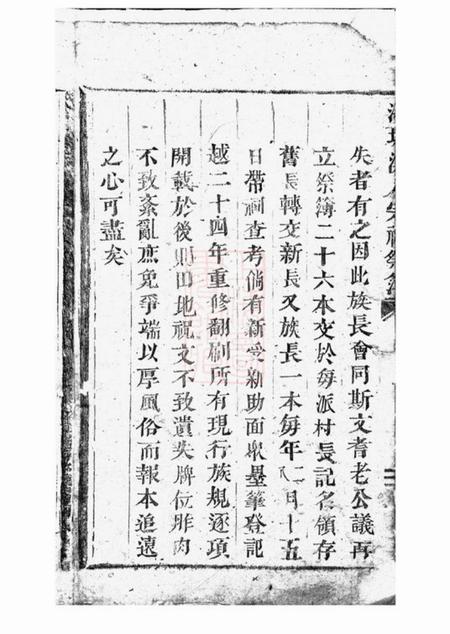 失者有之因此族長會同斯文耆老公議再
立祭簿二十六本交於每派村長記名領存
舊長轉交新長又族長一本每年八月十五
日帶祠查考倘有新受新助面眾登筆登記
越二十四年重修翻刷所有現行族規逐項
開載於後則田地祝文不致遺失牌位胙肉
不致紊亂庶免爭端以厚風俗而報本追遠
之心可盡矣